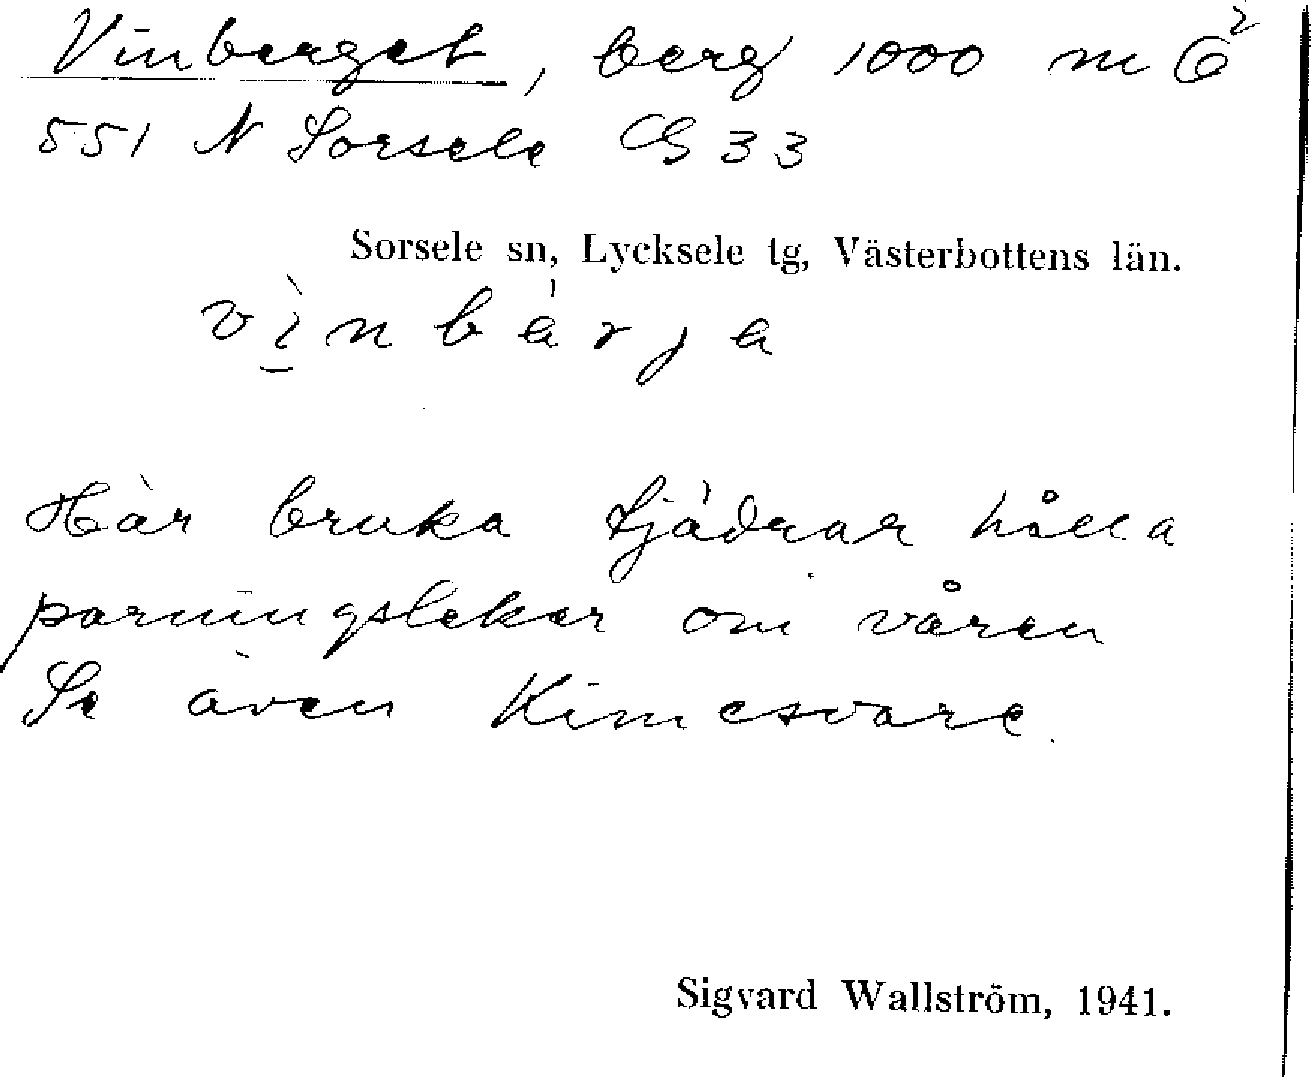 Vinberget, berg 1000 m Ö²
551 N Sorsele CG 33
Sorsele sn, Lycksele tg, Västerbottens län.
vìnbárja
Här bruka tjädrar hålla
parningslekar om våren
Se även Kimesvare.
Sigvard Wallström, 1941.